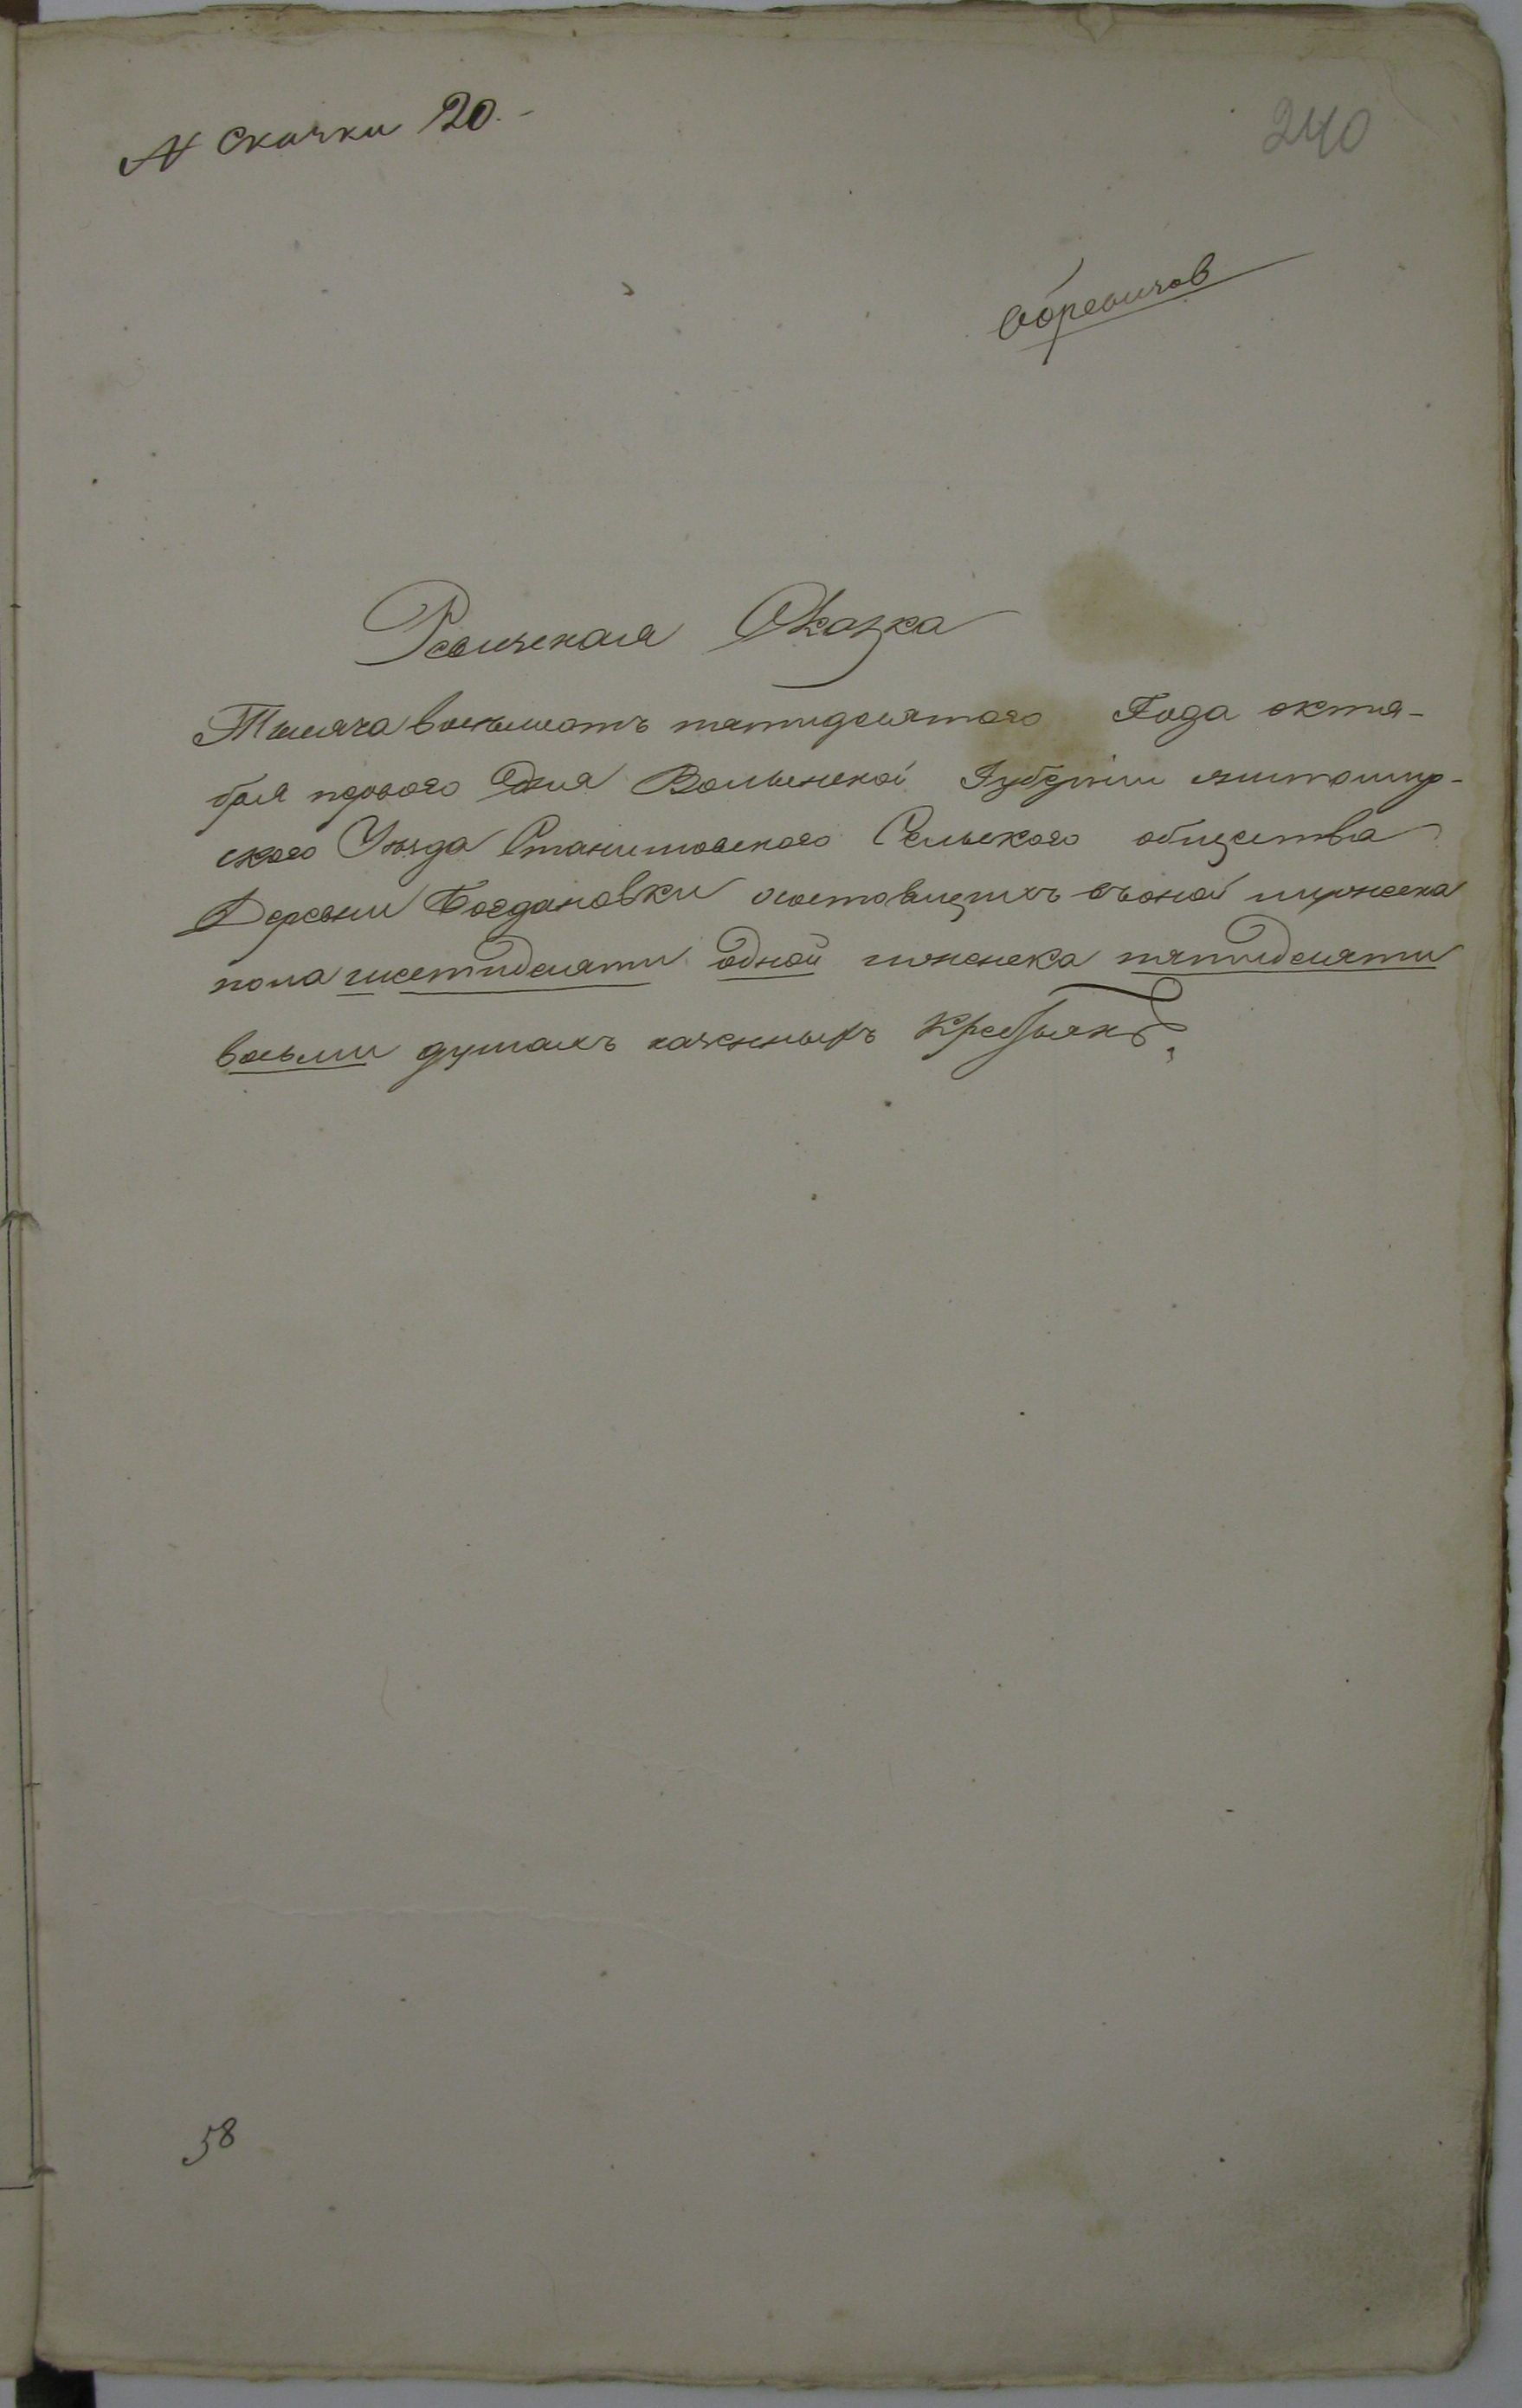 N Скачки 20.-
240
Ревижская Сказка
Тысяча восемьсотъ пятидесятого Года октя-
бря первого Дня Волынской Губерніи житомир-
ского Уезда Станишовского Сельского общества
Деревни Богдановки состоящихъ въ оной мужеска
пола шестидесяти одной и женска пятидесяти
восьми душахъ казенныхъ Крестьянъ,
58